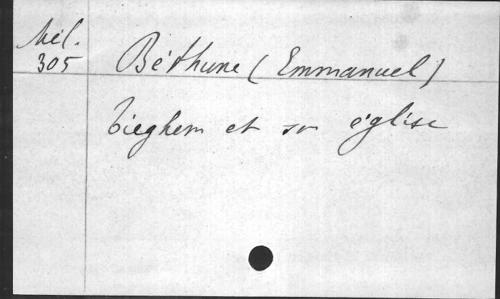 Mél.
305
Béthune (Emmanuel)
Tieghem et son église